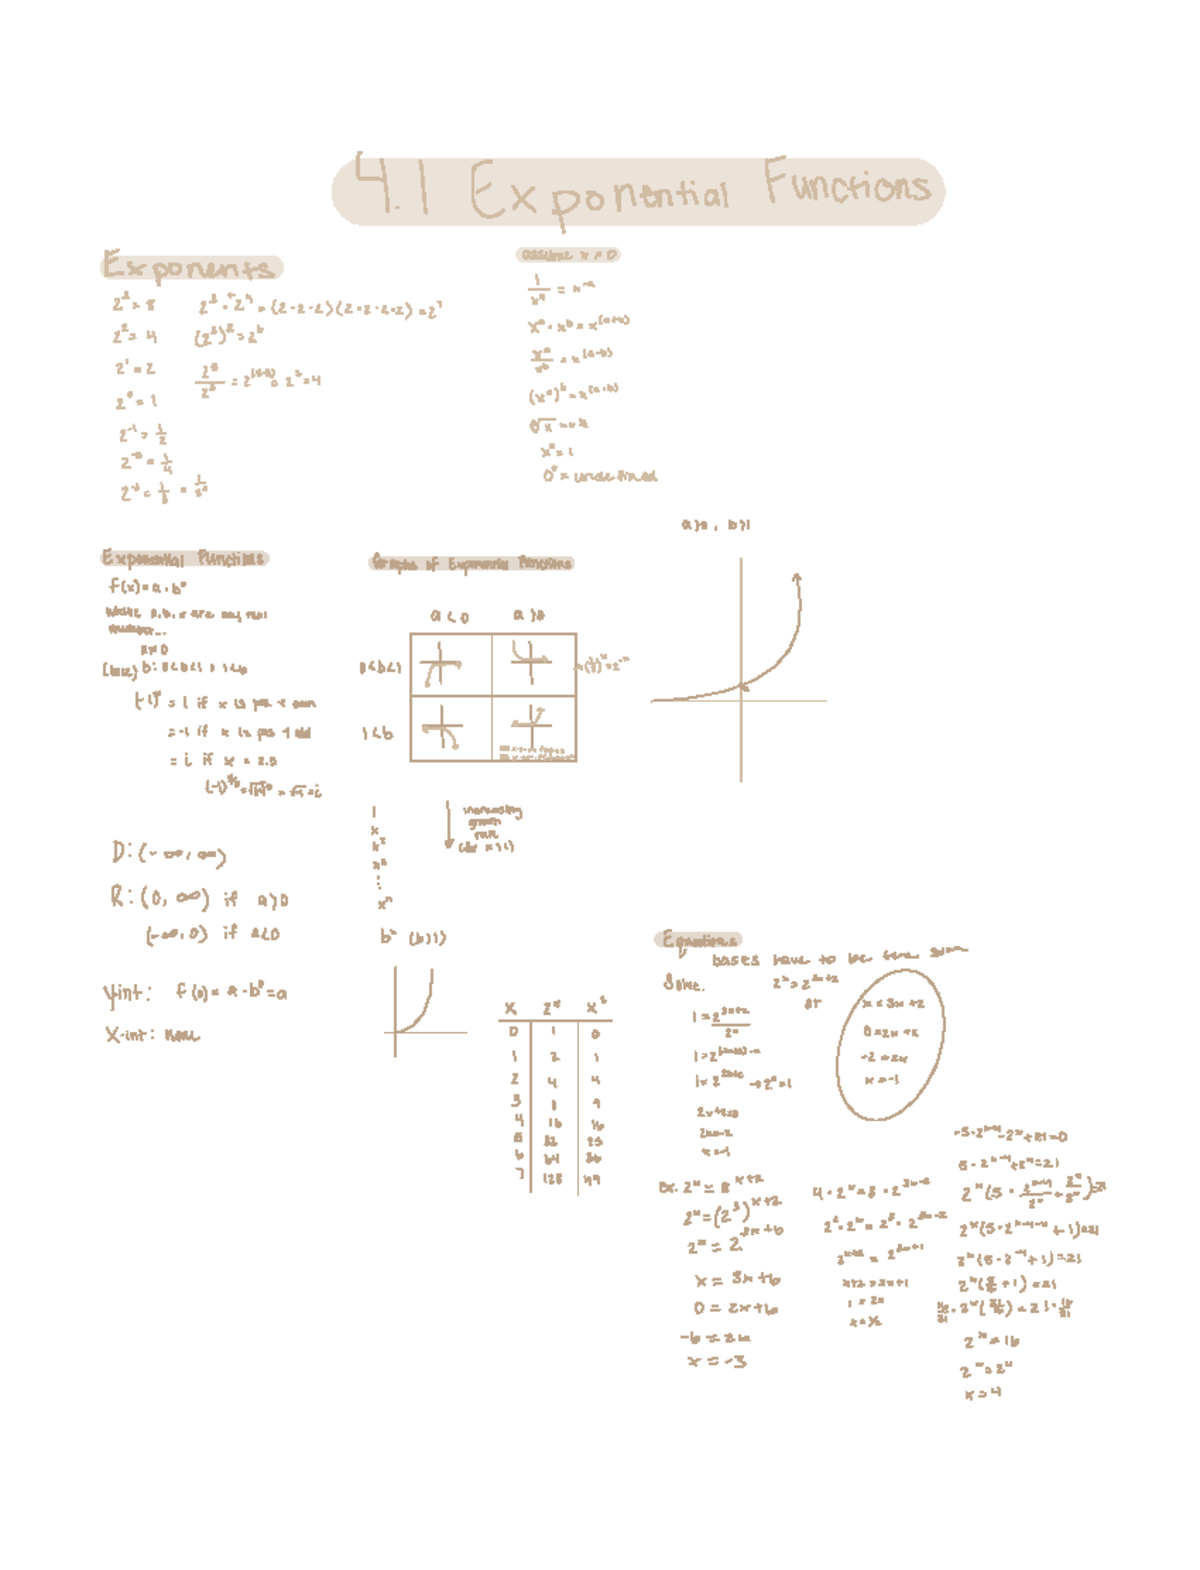 4.1 Exponential Functions
Exponents
2³ = 8
2² = 4
2¹ = 2
2⁰ = 1
2⁻¹ = 1/2
2⁻² = 1/4
2⁻³ = 1/8 = 1/2³
2³ · 2⁴ = (2·2·2)(2·2·2·2) = 2⁷
(2³)² = 2⁶
= 2² = 4
assume x ≠ 0
1/xᵃ = x⁻ᵃ
xᵃ · xᵇ = x^(a+b)
xᵃ/xᵇ = x^(a-b)
(xᵃ)ᵇ = x^(a·b)
x⁰ = 1
0⁰ = undefined
Exponential Functions
f(x) = a · bˣ
where a, b, x are any real
number...
a ≠ 0
(base) b: 0<b<1, 1<b
(-1)ˣ = 1 if x is pos + even
= -1 if x is pos + odd
= i if x =
D: (-∞, ∞)
R: (0, ∞) if a>0
(-∞, 0) if a<0
y-int: f(0) = a · b⁰ = a
x-int: none
Graphs of Exponential Functions
a < 0 a > 0
0<b<1
1<b
a>0, b>1
1
x
x²
x³
⋮
xⁿ
increasing
growth
rate
(for x>1)
bˣ (b>1)
x 2ˣ x²
0 1 0
1 2 1
2 4 4
3 8 9
4 16 16
5 32 25
6 64 36
7 128 49
Equations
bases have to be the same
Solve. 2ˣ = 2^(3x+2)
or
1 = 2^(3x+2)/2ˣ
1 = 2^((3x+2)-x)
1 = 2^(2x+2) → 2⁰ = 1
2x+2=0
2x=-2
x=-1
x = 3x + 2
0 = 2x + 2
-2 = 2x
x = -1
Ex. 2ˣ = 8^(x+2)
2ˣ = (2³)^(x+2)
2ˣ = 2^(3x+6)
x = 3x+6
0 = 2x+6
-6 = 2x
x = -3
4 · 2ˣ = 8 · 2^(3x-2)
2² · 2ˣ = 2³ · 2^(3x-2)
2^(x+2) = 2^(3x+1)
x+2 = 3x+1
1 = 2x
x = 1/2
-5 · 2^(x-4) - 2ˣ + 21 = 0
5 · 2^(x-4) + 2ˣ = 21
2ˣ(5 · 2^(x-4)/2ˣ + 2ˣ/2ˣ) = 21
2ˣ(5 · 2^(x-4-x) + 1) = 21
2ˣ(5 · 2⁻⁴ + 1) = 21
2ˣ(5/16 + 1) = 21
16/21 · 2ˣ(21/16) = 21 · 16/21
2ˣ = 16
2ˣ = 2⁴
x = 4